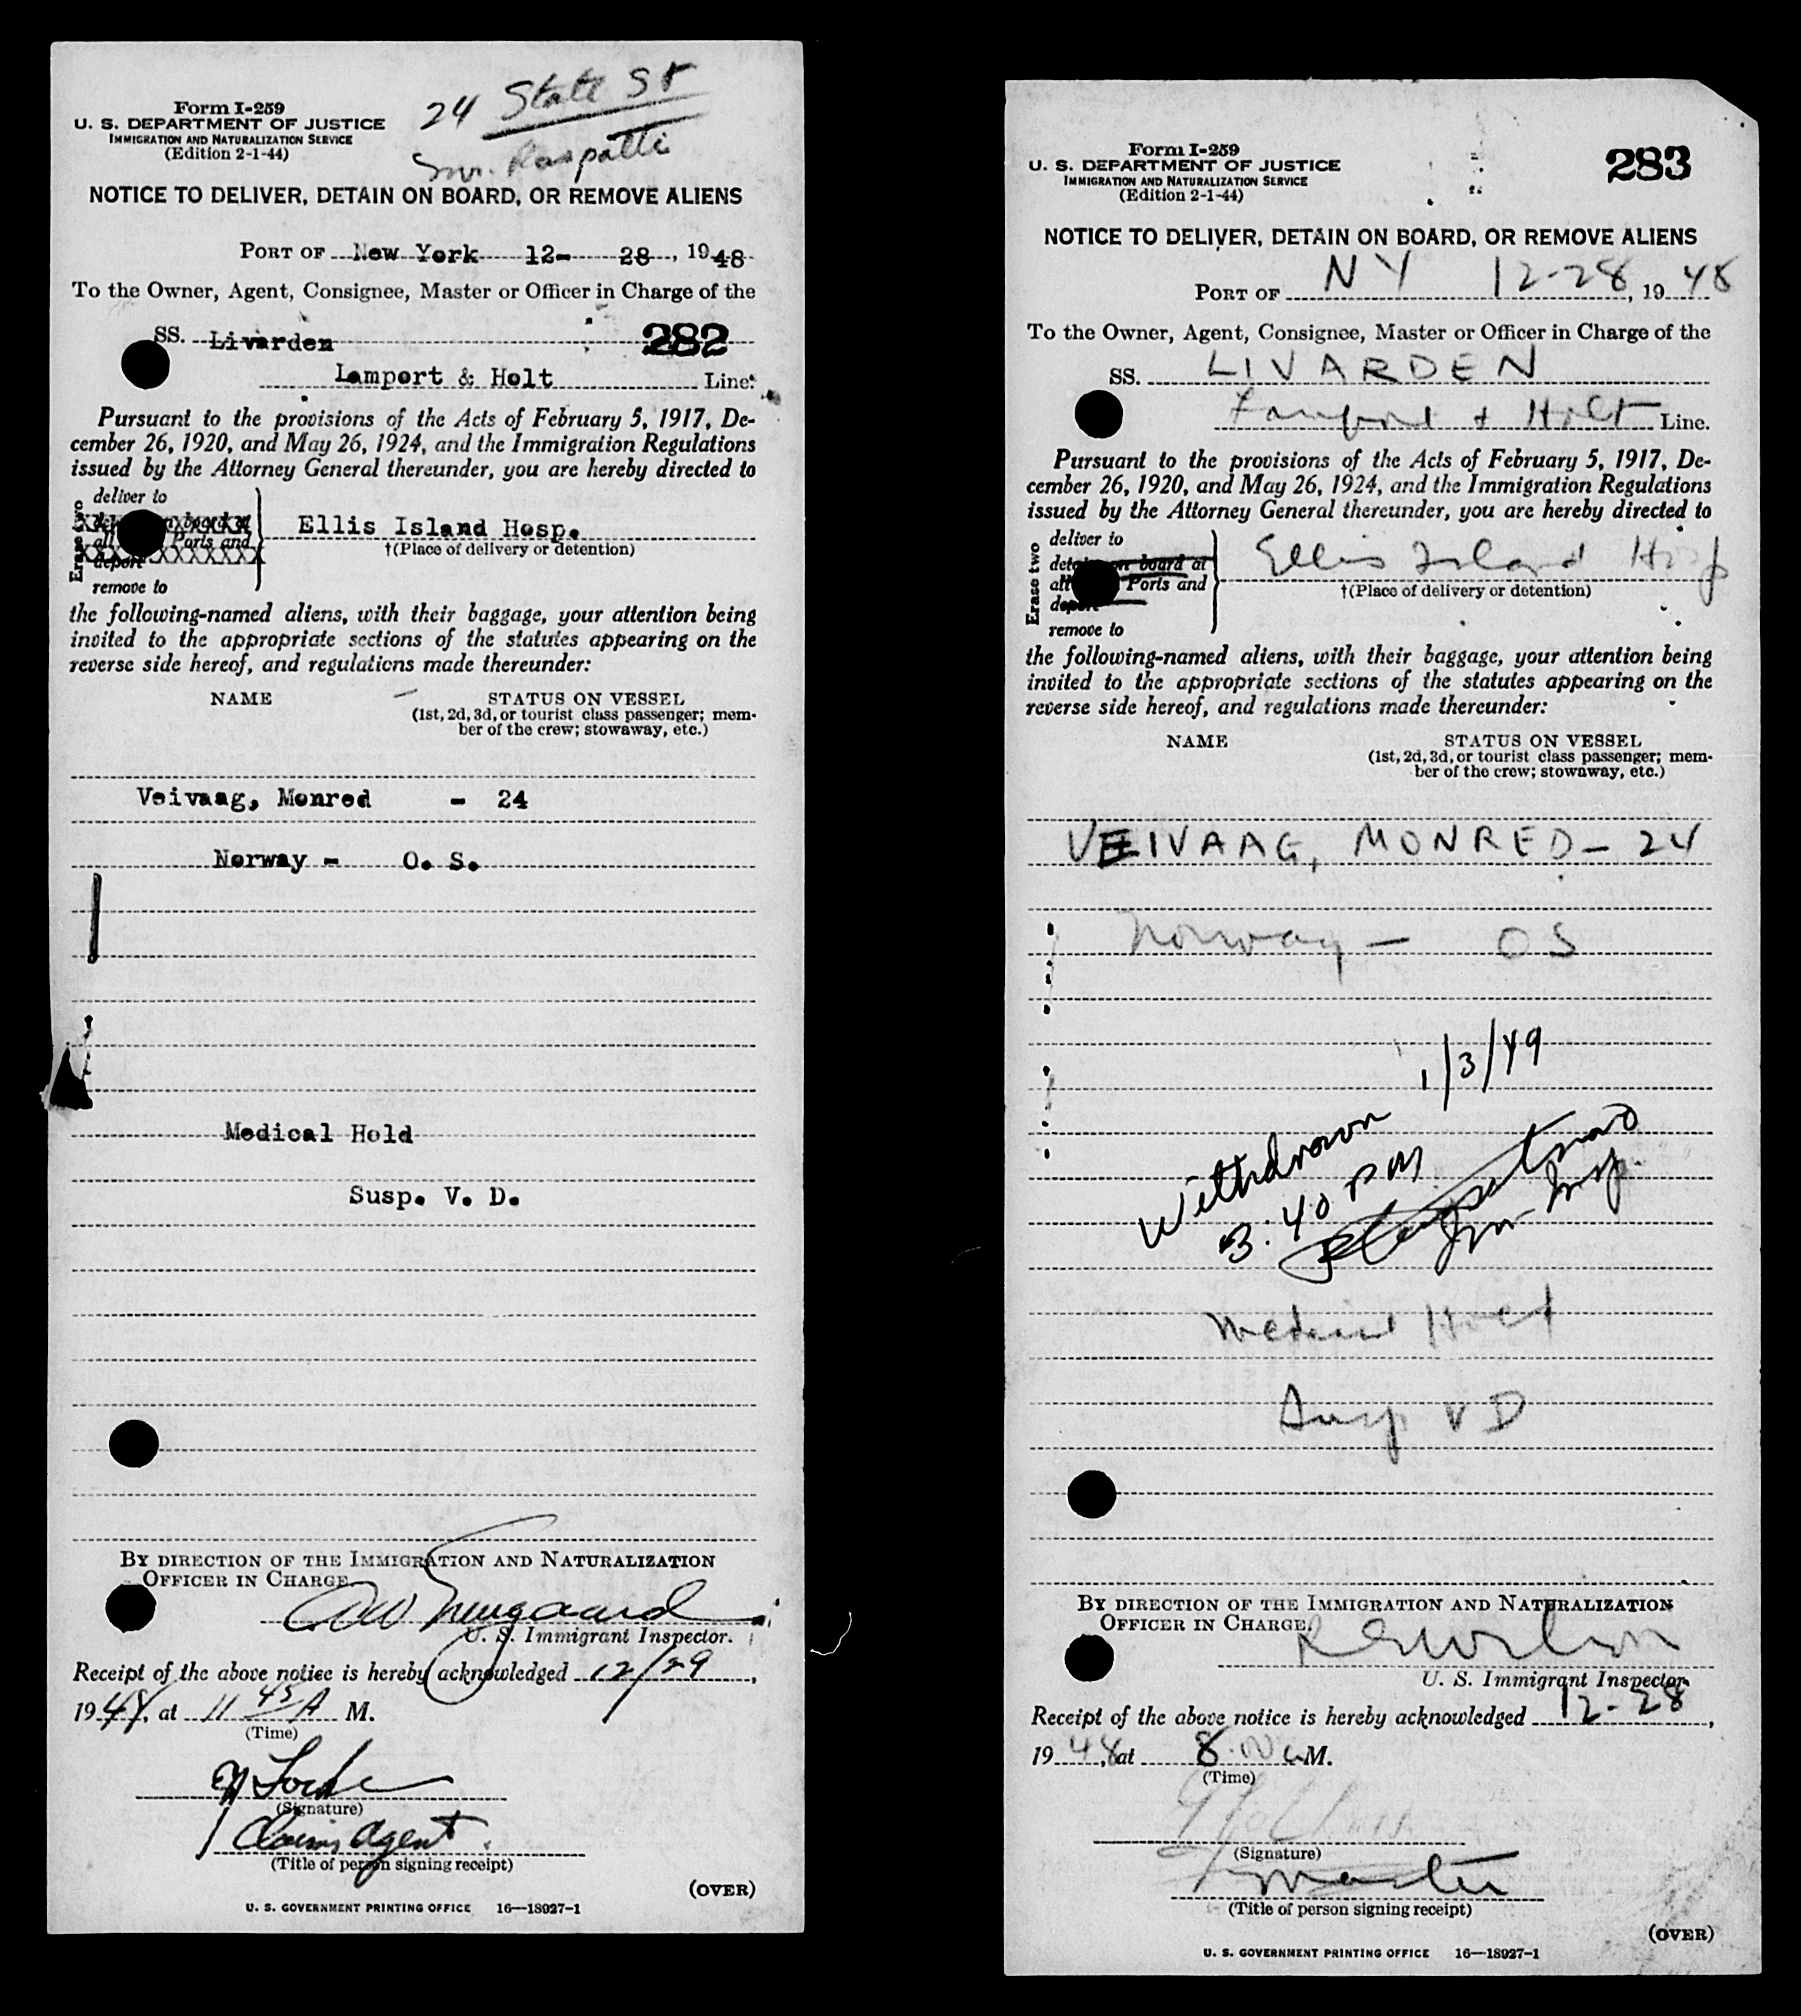 24 State St
Form I-259
U. S. DEPARTMENT OF JUSTICE
IMMIGRATION AND NATURALIZATION SERVICE
(Edition 2-1-44)
NOTICE TO DELIVER, DETAIN ON BOARD, OR REMOVE ALIENS
PORT OF New York 12- 28, 1948
To the Owner, Agent, Consignee, Master or Officer in Charge of the
SS. Livarden 282
Lamport & Holt Line.
Pursuant to the provisions of the Acts of February 5, 1917, De-
cember 26, 1920, and May 26, 1924, and the Immigration Regulations
issued by the Attorney General thereunder, you are hereby directed to
Erase two
deliver to
on board at
all Ports and
deport
remove to
Ellis Island Hosp.
†(Place of delivery or detention)
the following-named aliens, with their baggage, your attention being
invited to the appropriate sections of the statutes appearing on the
reverse side hereof, and regulations made thereunder:
NAME STATUS ON VESSEL
(1st, 2d, 3d, or tourist class passenger; mem-
ber of the crew; stowaway, etc.)
Veivaag, Monred - 24
Norway - O. S.
Medical Hold
Susp. V. D.
BY DIRECTION OF THE IMMIGRATION AND NATURALIZATION
OFFICER IN CHARGE.
U. S. Immigrant Inspector.
Receipt of the above notice is hereby acknowledged 12/29,
1948, at 11 45 A M.
(Time)
(Signature)
Claims Agent
(Title of person signing receipt)
(OVER)
U. S. GOVERNMENT PRINTING OFFICE 16—18027-1
Form I-259
U. S. DEPARTMENT OF JUSTICE
IMMIGRATION AND NATURALIZATION SERVICE
(Edition 2-1-44)
283
NOTICE TO DELIVER, DETAIN ON BOARD, OR REMOVE ALIENS
PORT OF NY 12-28, 1948
To the Owner, Agent, Consignee, Master or Officer in Charge of the
SS. LIVARDEN
Lamport & Holt Line.
Pursuant to the provisions of the Acts of February 5, 1917, De-
cember 26, 1920, and May 26, 1924, and the Immigration Regulations
issued by the Attorney General thereunder, you are hereby directed to
Erase two
deliver to
on board at
all Ports and
deport
remove to
Ellis Island Hosp
†(Place of delivery or detention)
the following-named aliens, with their baggage, your attention being
invited to the appropriate sections of the statutes appearing on the
reverse side hereof, and regulations made thereunder:
NAME STATUS ON VESSEL
(1st, 2d, 3d, or tourist class passenger; mem-
ber of the crew; stowaway, etc.)
VEIVAAG, MONRED - 24
Norway - OS
1/3/49
Withdrawn
3:40 PM
Imm Insp.
Medical Hold
Susp VD
BY DIRECTION OF THE IMMIGRATION AND NATURALIZATION
OFFICER IN CHARGE.
U. S. Immigrant Inspector.
Receipt of the above notice is hereby acknowledged 12-28,
1948, at M.
(Time)
(Signature)
Master
(Title of person signing receipt)
(OVER)
U. S. GOVERNMENT PRINTING OFFICE 16—18027-1